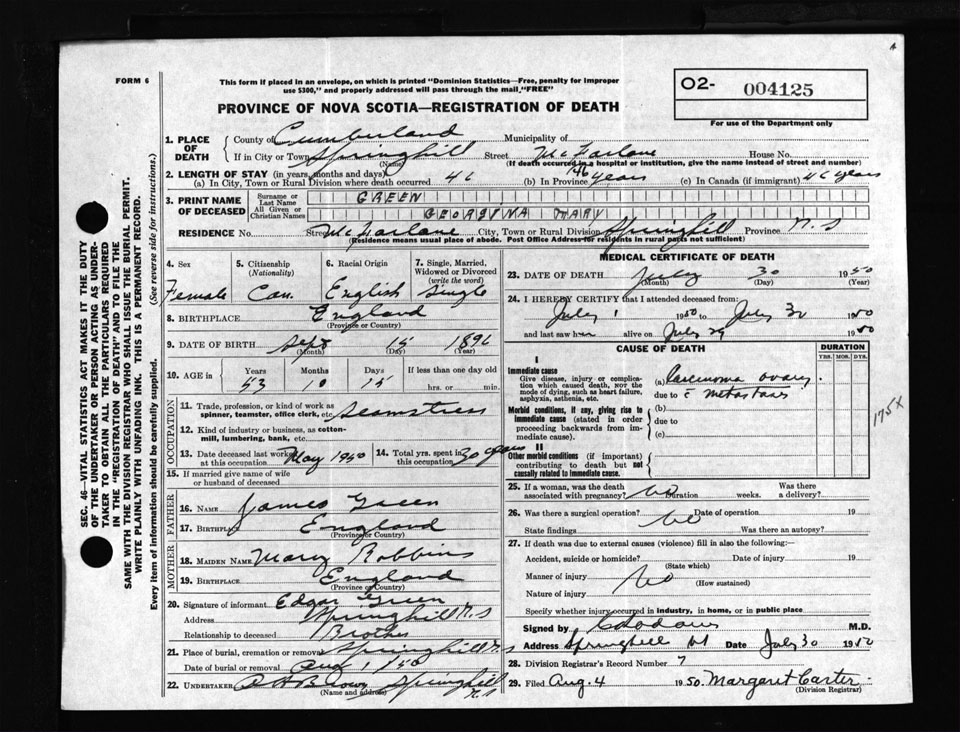 FORM 6
This form if placed in an envelope, on which is printed "Dominion Statistics—Free, penalty for improper
use $300," and properly addressed will pass through the mail, "FREE"
PROVINCE OF NOVA SCOTIA—REGISTRATION OF DEATH
O2- 004125
For use of the Department only
SEC. 46—VITAL STATISTICS ACT MAKES IT THE DUTY
OF THE UNDERTAKER OR PERSON ACTING AS UNDER-
TAKER TO OBTAIN ALL THE PARTICULARS REQUIRED
IN THE "REGISTRATION OF DEATH" AND TO FILE THE
SAME WITH THE DIVISION REGISTRAR WHO SHALL ISSUE THE BURIAL PERMIT.
WRITE PLAINLY WITH UNFADING INK. THIS IS A PERMANENT RECORD.
Every item of information should be carefully supplied. (See reverse side for instructions.)
1. PLACE OF DEATH
County of Cumberland Municipality of
If in City or Town Springhill Street McFarlane House No.
(Name) (If death occurred in a hospital or institution, give the name instead of street and number)
2. LENGTH OF STAY (in years, months and days)
(a) In City, Town or Rural Division where death occurred 46 (b) In Province 46 years (c) In Canada (if immigrant) 46 years
3. PRINT NAME OF DECEASED
Surname or Last Name GREEN
All Given or Christian Names GEORGINA MARY
RESIDENCE No. Street McFarlane City, Town or Rural Division Springhill Province N.S
(Residence means usual place of abode. Post Office Address for residents in rural parts not sufficient)
4. Sex Female
5. Citizenship (Nationality) Can.
6. Racial Origin English
7. Single, Married, Widowed or Divorced (write the word) Single
8. BIRTHPLACE England
(Province or Country)
9. DATE OF BIRTH Sept 15 1896
(Month) (Day) (Year)
10. AGE in Years Months Days If less than one day old
53 10 15 hrs. or min.
OCCUPATION
11. Trade, profession, or kind of work as spinner, teamster, office clerk, etc. Seamstress
12. Kind of industry or business, as cotton-mill, lumbering, bank, etc.
13. Date deceased last worked at this occupation May 1950 14. Total yrs. spent in this occupation 30 years
15. If married give name of wife or husband of deceased
FATHER
16. NAME James Green
17. BIRTHPLACE England
(Province or Country)
MOTHER
18. MAIDEN NAME Mary Robbins
19. BIRTHPLACE England
(Province or Country)
20. Signature of informant Edgar Green
Address Springhill N.S
Relationship to deceased Brother
21. Place of burial, cremation or removal Springhill N.S
Date of burial or removal Aug 1 1950
22. UNDERTAKER Brown Springhill N.S
(Name and address)
MEDICAL CERTIFICATE OF DEATH
23. DATE OF DEATH July 30 1950
(Month) (Day) (Year)
24. I HEREBY CERTIFY that I attended deceased from:
July 1 1950 to July 30 1950
and last saw her alive on July 29 1950
CAUSE OF DEATH DURATION
YRS. MOS. DYS.
I
Immediate cause
Give disease, injury or complication which caused death, not the mode of dying, such as heart failure, asphyxia, asthenia, etc.
(a) Carcinoma ovary
due to c metastases
Morbid conditions, if any, giving rise to immediate cause (stated in order proceeding backwards from immediate cause).
(b)
due to
(c)
II
Other morbid conditions (if important) contributing to death but not causally related to immediate cause.
175X
25. If a woman, was the death associated with pregnancy? No Duration weeks. Was there a delivery?
26. Was there a surgical operation? No Date of operation 19
State findings Was there an autopsy?
27. If death was due to external causes (violence) fill in also the following:—
Accident, suicide or homicide? Date of injury 19
(State which)
Manner of injury No
(How sustained)
Nature of injury
Specify whether injury occurred in industry, in home, or in public place
Signed by M.D.
Address Springhill Date July 30 1950
28. Division Registrar's Record Number 7
29. Filed Aug. 4 1950. Margaret Carter
(Division Registrar)